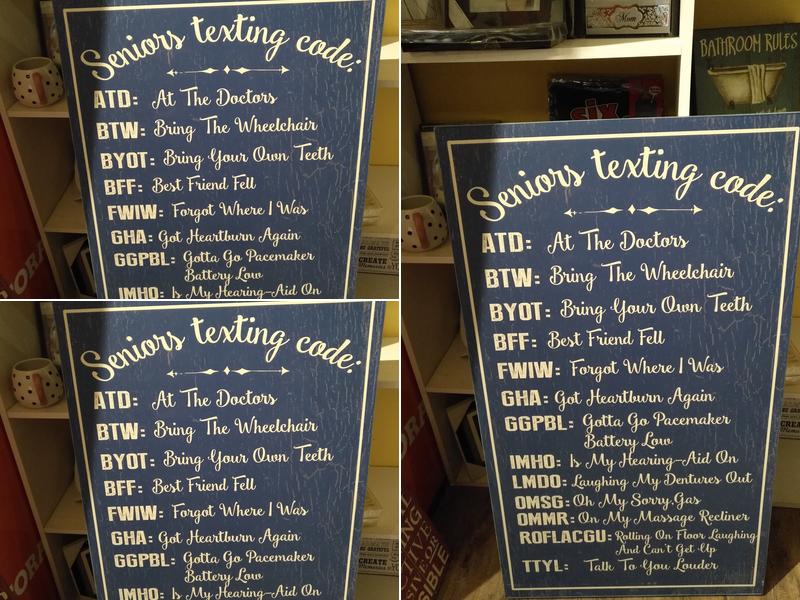 Seniors texting code:
ATD: At The Doctors
BTW: Bring The Wheelchair
BYOT: Bring Your Own Teeth
BFF: Best Friend Fell
FWIW: Forgot Where I Was
GHA: Got Heartburn Again
GGPBL: Gotta Go Pacemaker
Battery Low
IMHO: Is My Hearing-Aid On
CREATE
Seniors texting code:
ATD: At The Doctors
BTW: Bring The Wheelchair
BYOT: Bring Your Own Teeth
BFF: Best Friend Fell
FWIW: Forgot Where I Was
GHA: Got Heartburn Again
GGPBL: Gotta Go Pacemaker
Battery Low
IMHO: Is My Hearing-Aid On
CREATE
Mom
BATHROOM RULES
six
Seniors texting code:
ATD: At The Doctors
BTW: Bring The Wheelchair
BYOT: Bring Your Own Teeth
BFF: Best Friend Fell
FWIW: Forgot Where I Was
GHA: Got Heartburn Again
GGPBL: Gotta Go Pacemaker
Battery Low
IMHO: Is My Hearing-Aid On
LMDO: Laughing My Dentures Out
OMSG: Oh My Sorry, Gas
OMMR: On My Massage Recliner
ROFLACGU: Rolling On Floor Laughing
And Can't Get Up
TTYL: Talk To You Louder